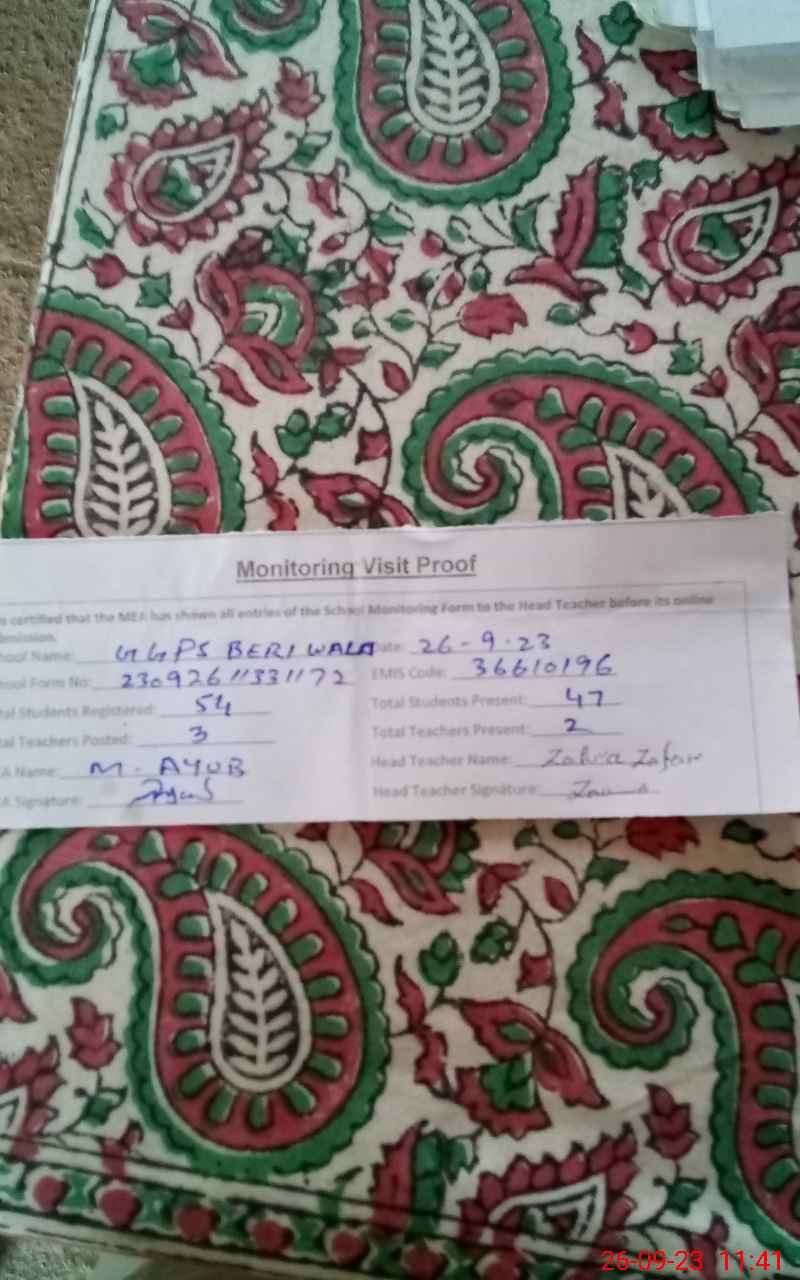 Monitoring Visit Proof
s certified that the MEA has shown all entries of the School Monitoring Form to the Head Teacher before its online
bmission.
hool Name: GGPS BERI WALA Date: 26-9-23
hool Form No: 23092611331172 EMIS Code: 36610196
tal Students Registered: 54 Total Students Present: 47
tal Teachers Posted: 3 Total Teachers Present: 2
A Name: M. AYUB Head Teacher Name: Zahra Zafar
A Signature: Head Teacher Signature:
26-09-23 11:41